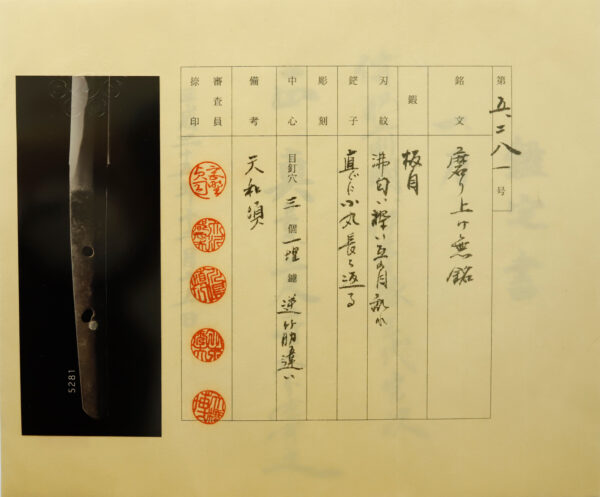 第五、二八一号
銘文 磨り上げ無銘
鍛 板目
刃紋 沸匂い深い互の目乱れ
鋩子 直ぐに小丸長く返る
彫刻
中心 目釘穴 三個 一埋 鑢 逆筋違い
備考 天和頃
審査員
捺印
5281